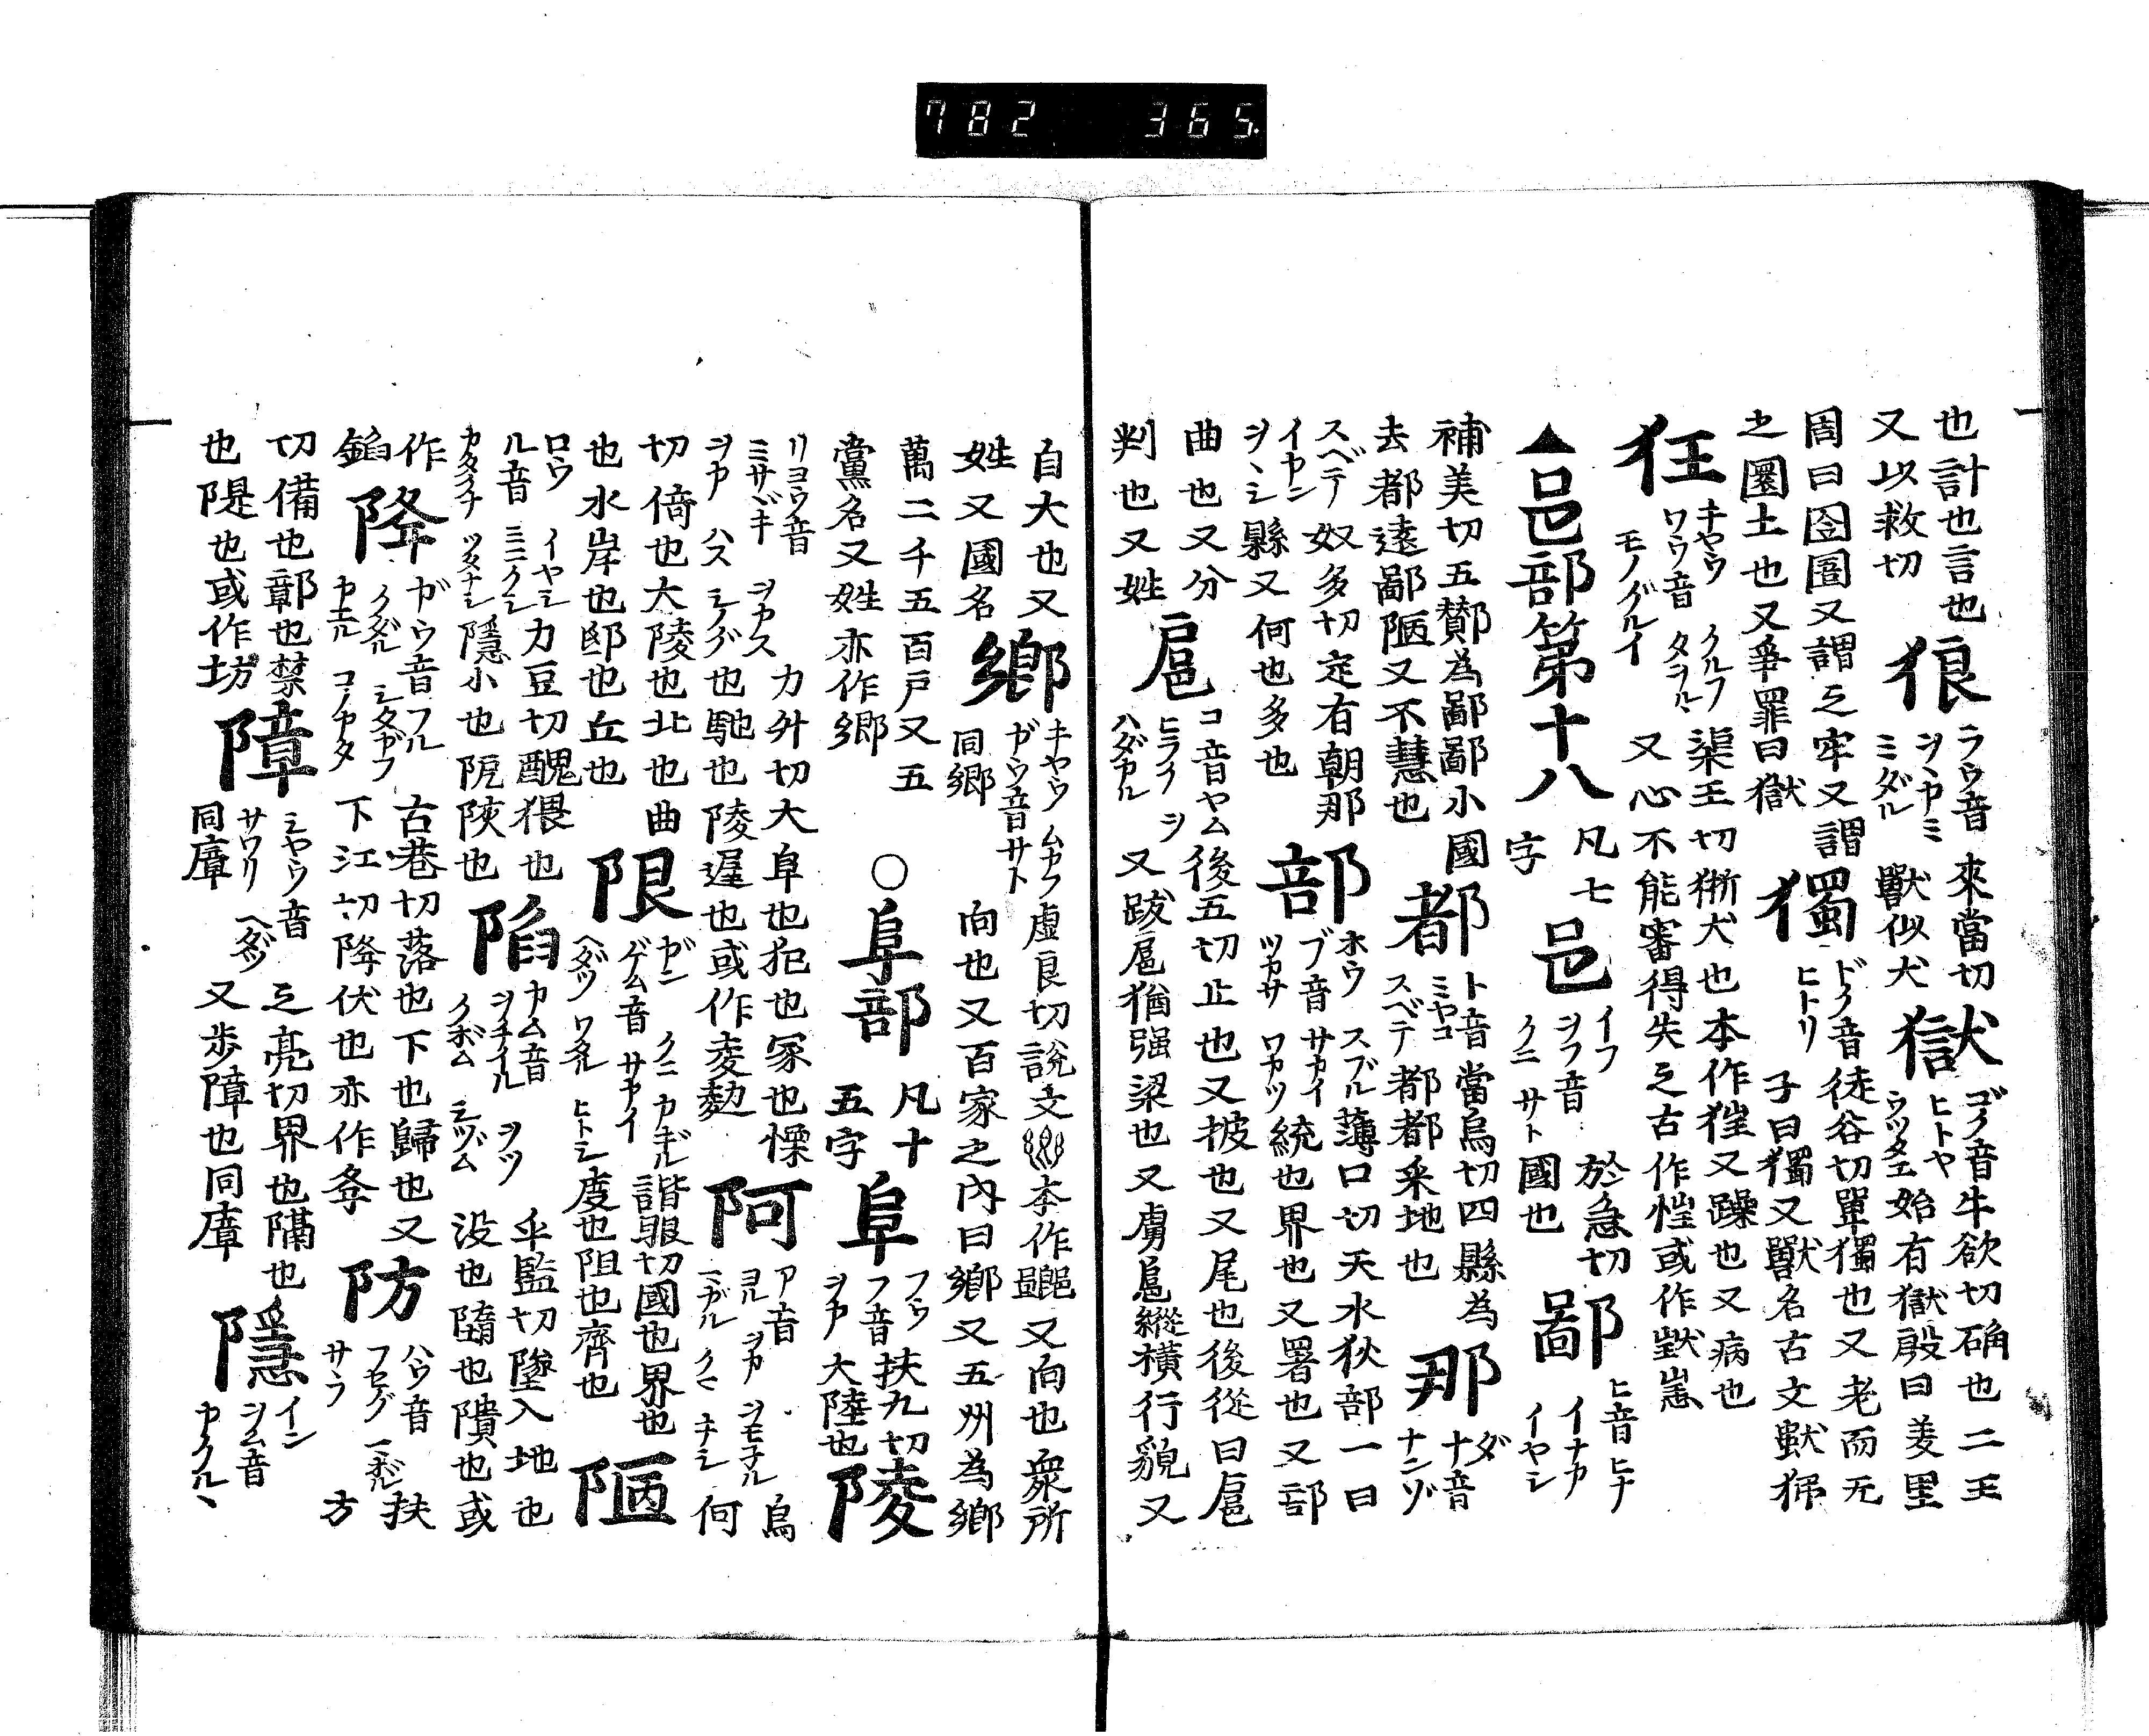 782 365
也計也言也
又以救切
狼
ラウ音
ヲヽカミ
ミダル
來當切
獸似犬
獄
ゴク音
ヒトヤ
ウツタエ
牛欲切确也二王
始有獄殷曰羑里
周曰囹圄又謂之牢又謂
之圜土也又爭罪曰獄
獨
ドク音
ヒトリ
徒谷切單獨也又老而无
子曰獨又獸名古文
狂
キヤウ
ワウ音
モノグルイ
クルフ
タヲルヽ
渠王切狾犬也本作㹵又躁也又病也
又心不能審得失之古作惶或作
▲邑部第十八
凡七
字
邑
イフ
ヲフ音
クニ サト
於急切
國也
鄙
ヒ音 ヒナ
イナカ
イヤシ
補美切五酇為鄙鄙小國
去都遠鄙陋又不慧也
都
ト音
ミヤコ
スベテ
當烏切四縣為
都都采地也
那
ダ
ナ音
ナンゾ
スベテ
イカン
ヲヽシ
奴多切定有朝那
縣又何也多也
部
ホウ
ブ音
ツカサ
スブル
サカイ
ワカツ
薄口切天水狄部一曰
統也界也又署也又部
曲也又分
判也又姓
扈
コ音 ヤム
ヒラク
ハダカル
後五切止也又披也又尾也後從曰扈
又跋扈猶强梁也又虜扈縱橫行貌又
自大也又
姓又國名
鄉
キヤウ
ガウ音 サト
同郷
ムカフ
虛良切說文
本作
又向也衆所
向也又百家之內曰鄉又五州為鄉
萬二千五百戸又五
黨名又姓亦作郷
○阜部
凡十
五字
阜
フウ
フ音
ヲカ
扶九切
大陸也
陵
リヨウ音
ミサヾキ
ヲカ
ヲカス
シノグ
力升切大阜也犯也冢也慄
也馳也陵遲也或作夌
阿
ア音
ヨル
ヲカ
烏
何
切倚也大陵也北也曲
也水岸也邸也丘也
限
ガン
ゲム音
ヘダツ
クニ カギル
サカイ
ヒトシ
諧眼切國也界也
度也阻也齊也
陋
ロウ
ル音
カタクナ
イヤシ
ミニクシ
ツタナシ
力豆切醜猥也
隱小也阨陝也
陷
カム音
ヲチイル
クボム
ヲツ
シヅム
乎監切墜入地也
没也墮也隤也或
作
錎
降
ガウ音 フル
クダル
シタガフ
古巷切落也下也歸也又
下江切降伏也亦作夅
防
ハウ音
フセグ
サラ
扶
方
切備也鄣也禁
也隄也或作坊
障
シヤウ音
サワリ
ヘダツ
同庫
之亮切界也隔也
又步障也同
隱
イン
ヲム音
カクルヽ